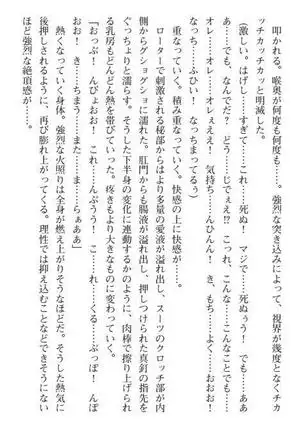 叩かれる。喉奥が何度も何度も……。強烈な突き込みによって、視界が幾度となくチカ
ッチカッチカッと明滅した。
(激しい。はげし……すぎて……これ……死ぬ! マジで……死ぬぅ! でも……あ
あ……でも……なんで? どう……じでぇぇ!? こっこれ、こんな……こんなことでも……
オレ……オレ……オレぇぇぇ! 気持ち……んひんん! き、もち……よく……おおお!
なっち……ふひい! なっちまってるぅ)
重なっていく。積み重なっていく。快感の上に快感が……。
ローターで刺激される秘部からはより多量の愛液が溢れ出し、スーツのクロッチ部が内
側からグショグショに濡れた。肛門からも腸液が溢れ出し、押しつけられた真釘の指先を
ぐっちょりと濡らす。そうした下半身の変化に連動するかのように、肉棒で擦り上げられ
る乳房もどんどん熱を帯びていった。疼きもより大きなものに変わっていく。
『おっぷ! んぴょおお! これ……んぶうう! こ……れ……くる……ぶっぽ! んぽ
おお! き……ちまう……また……ま……らぁああ』
熱くなっていく身体。強烈な火照りは全身が燃え上がりそうなほどだ。そうした熱気に
後押しされるように、再び膨れ上がってくる。理性では抑え込むことなどできそうにない
ほど強烈な絶頂感が……。